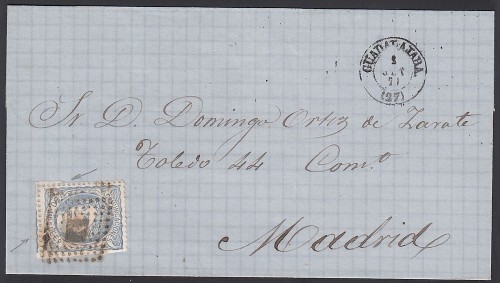 GUADALAJARA
(27)
Sr. D. Domingo Ortiz de Zarate
Toledo 44 Com.o
Madrid